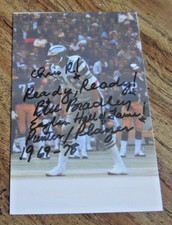 Chris
Ready, Ready!
Bill Bradley
Eagles Hall of Fame!
Punter/Player
1969-76